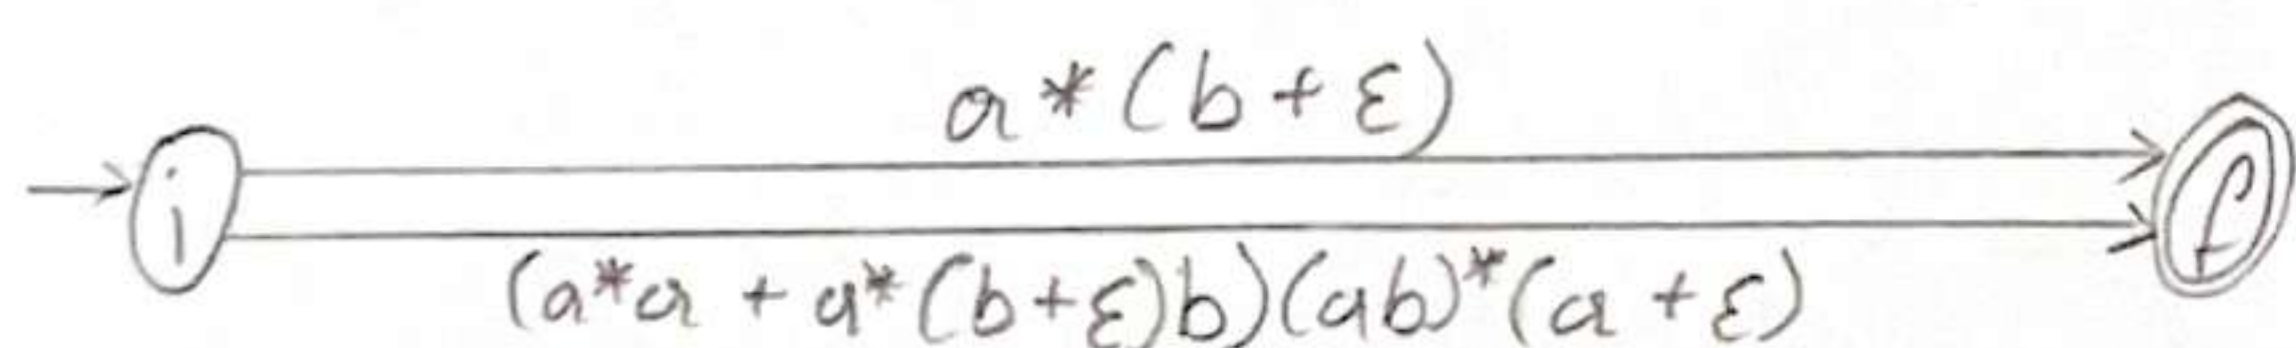 a*(b+ε)
i
f
(a*a + a*(b+ε)b)(ab)*(a+ε)